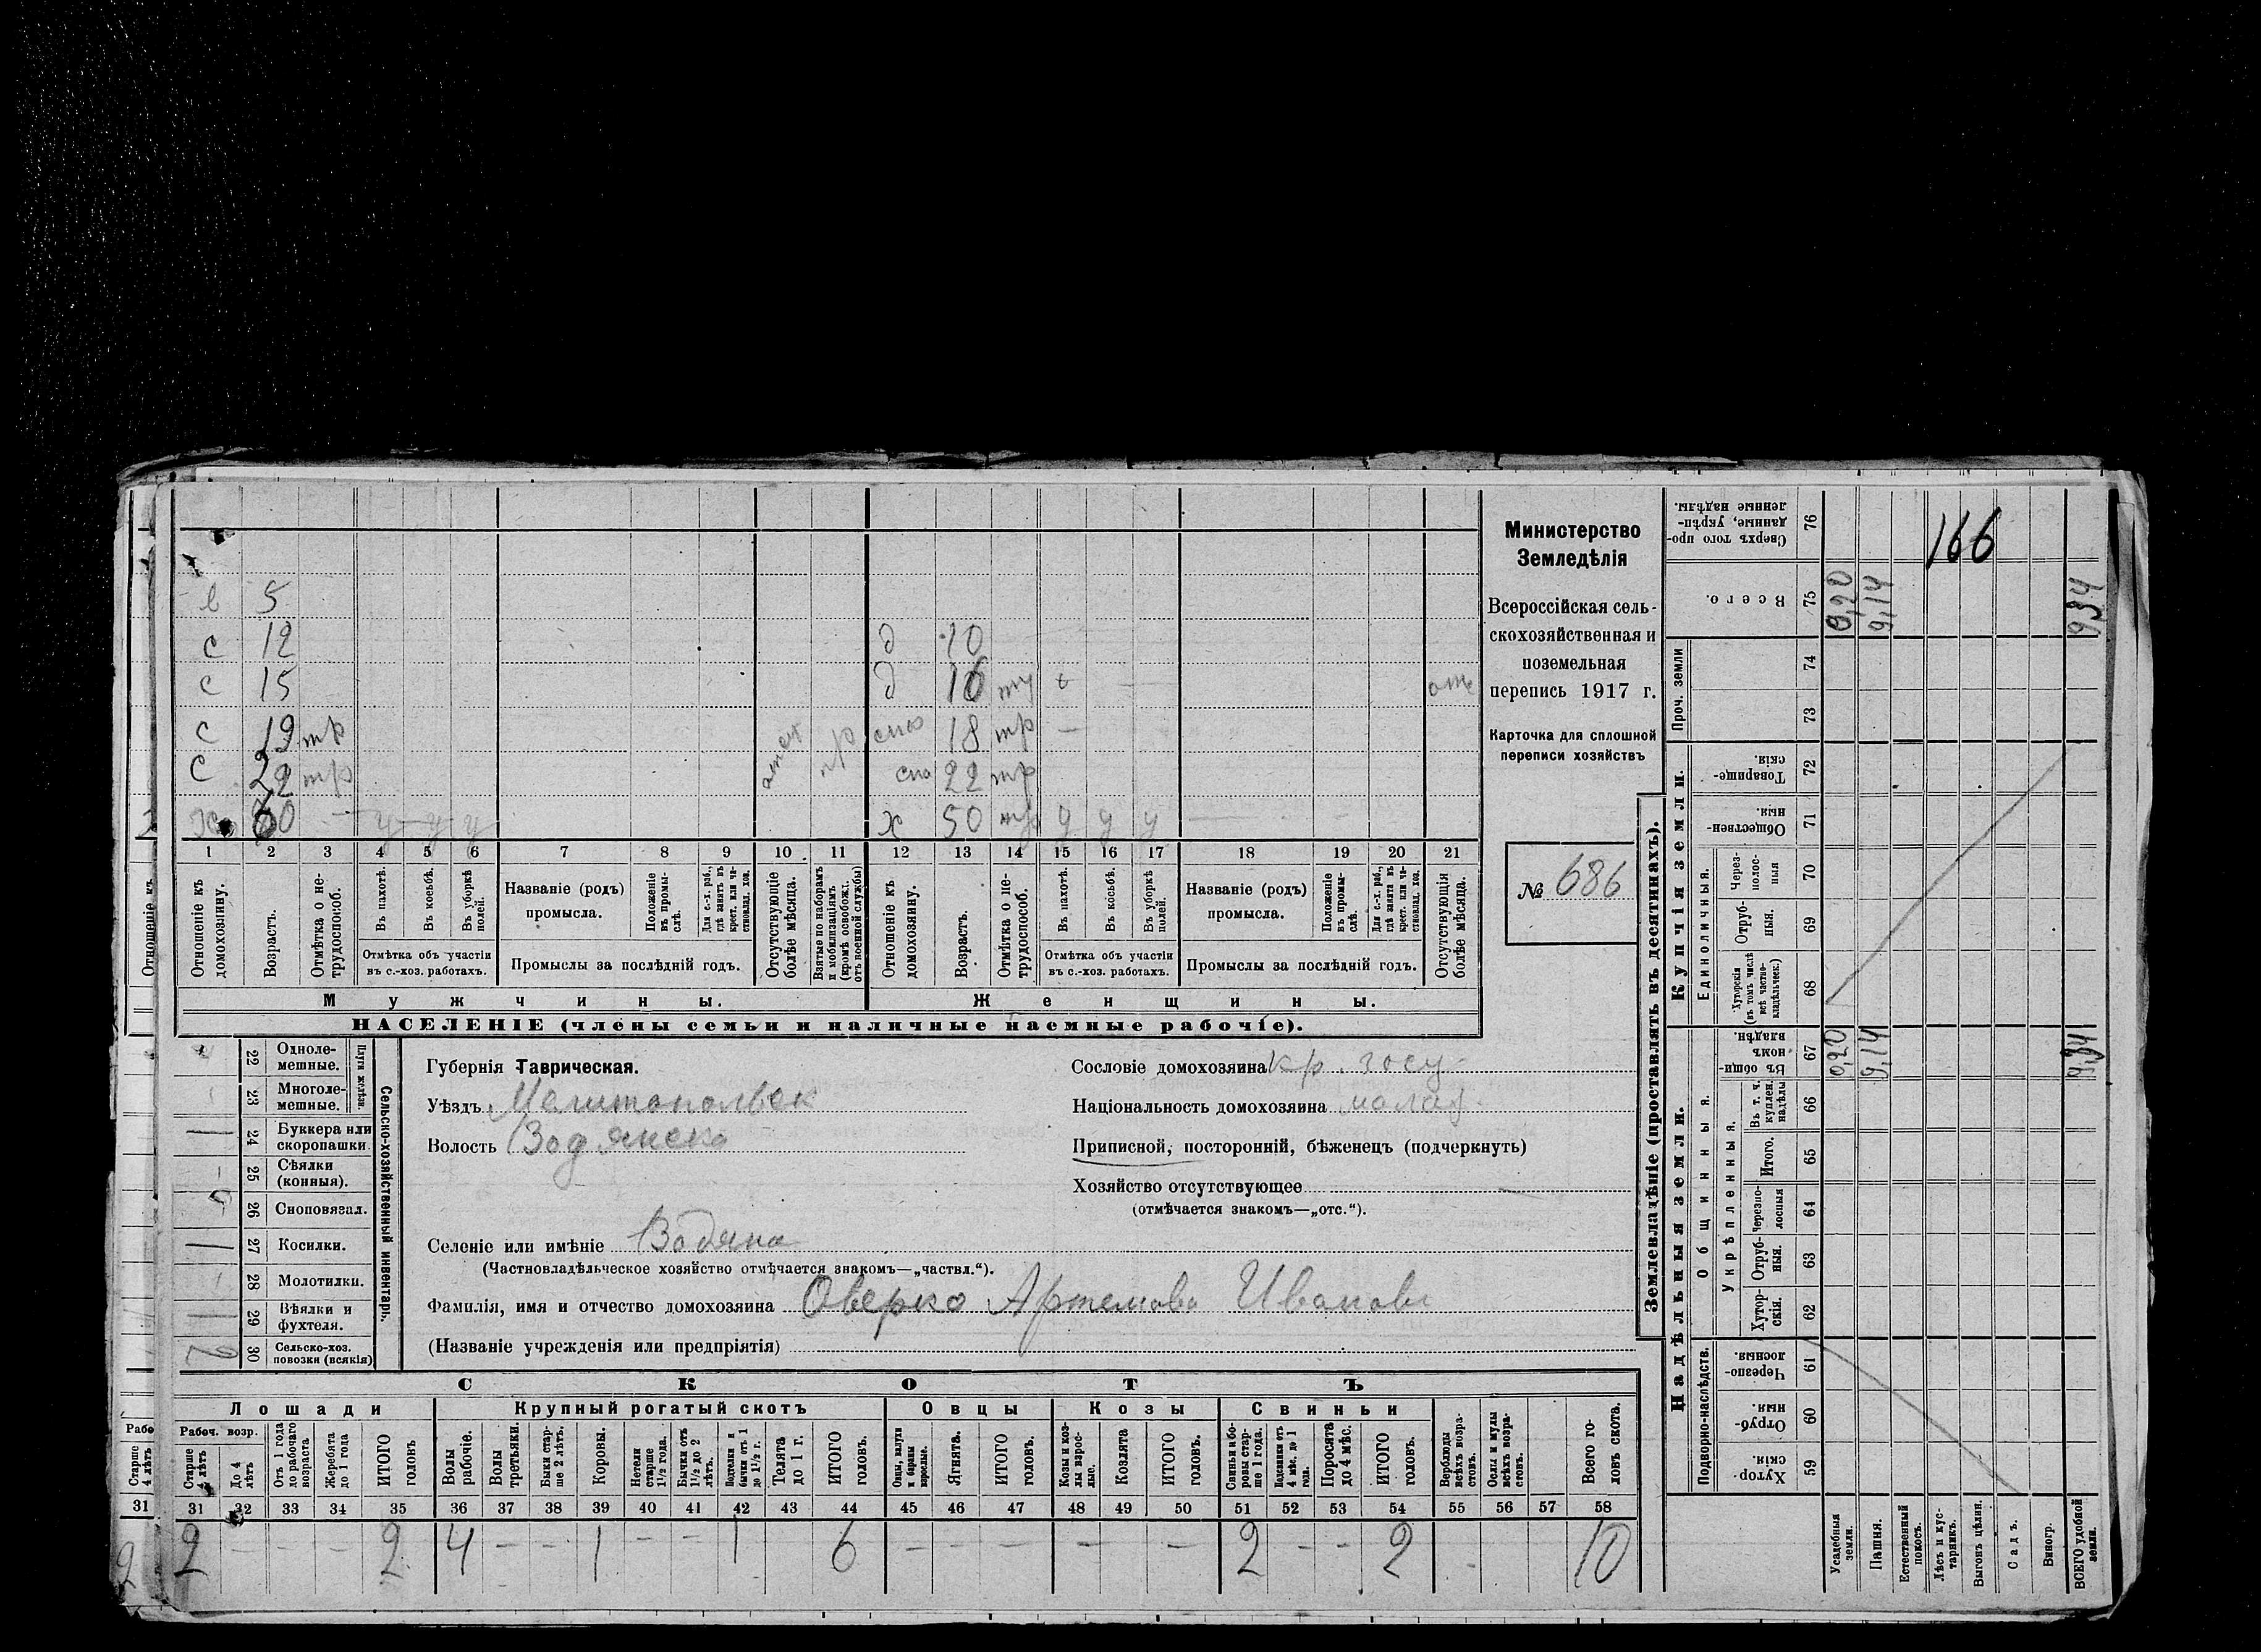 в 5
с 12 д 10
с 15 д 16
с 19 тр пр 18 тр —
с 22 тр 22 тр
60 — у у у ж 50 у у у
1 2 3 4 5 6 7 8 9 10 11 12 13 14 15 16 17 18 19 20 21
Отношеніе къ домохозяину.
Возрастъ.
Отмѣтка о нетрудоспособ.
Въ пахотѣ.
Въ косьбѣ.
Въ уборкѣ полей.
Отмѣтка объ участіи
въ с.-хоз. работахъ.
Названіе (родъ)
промысла.
Положеніе въ промыслѣ.
Для с.-х. раб., гдѣ занятъ въ крест. или частновлад. хоз.
Промыслы за послѣдній годъ.
Отсутствующіе болѣе мѣсяца.
Взятые по наборамъ и мобилизаціямъ (кромѣ освобожд. отъ военной службы)
Отношеніе къ домохозяину.
Возрастъ.
Отмѣтка о нетрудоспособ.
Въ пахотѣ.
Въ косьбѣ.
Въ уборкѣ полей.
Отмѣтка объ участіи
въ с.-хоз. работахъ.
Названіе (родъ)
промысла.
Положеніе въ промыслѣ.
Для с.-х. раб., гдѣ занята въ крест. или частновлад. хоз.
Промыслы за послѣдній годъ.
Отсутствующія болѣе мѣсяца.
Мужчины.
Женщины.
НАСЕЛЕНІЕ (члены семьи и наличные наемные рабочіе).
Министерство
Земледѣлія
Всероссійская сель-
скохозяйственная и
поземельная
перепись 1917 г.
Карточка для сплошной
переписи хозяйствъ
№ 686
Сельско-хозяйственный инвентарь.
Плуги желѣзн.
22 Одноле-
мешные.
23 Многоле-
мешные.
24 Буккера или
скоропашки.
25 Сѣялки
(конныя).
26 Сноповязал.
27 Косилки.
28 Молотилки.
29 Вѣялки и
фухтеля.
30 Сельско-хоз.
повозки (всякія) 2
Губернія Таврическая.
Уѣздъ Мелитопольск
Волость Водянско
Селеніе или имѣніе Водяно
(Частновладѣльческое хозяйство отмѣчается знакомъ—„частвл.“).
Фамилія, имя и отчество домохозяина Оверко Артемово Иванови
(Названіе учрежденія или предпріятія)
Сословіе домохозяина кр. госу
Національность домохозяина
Приписной, посторонній, бѣженецъ (подчеркнуть)
Хозяйство отсутствующее
(отмѣчается знакомъ—„отс.“).
СКОТЪ
Лошади
Крупный рогатый скотъ
Овцы
Козы
Свиньи
Рабоч. возр.
Старше 4 лѣтъ
До 4 лѣтъ
Отъ 1 года до рабочаго возраста
Жеребята до 1 года
ИТОГО головъ
Волы рабочіе.
Волы третьяки.
Быки старше 2 лѣтъ.
Коровы.
Нетели старше 1½ года.
Бычки отъ 1½ до 2 лѣтъ.
Подтелки и бычки отъ 1 до 1½ г.
Телята до 1 г.
ИТОГО головъ.
Овцы, валухи и бараны взрослые.
Ягнята.
ИТОГО головъ.
Козы и козлы взрослые.
Козлята
ИТОГО головъ.
Свиньи и боровы старше 1 года.
Подсвинки отъ 4 мѣс. до 1 года.
Поросята до 4 мѣс.
ИТОГО головъ.
Верблюды всѣхъ возрастовъ.
Ослы и мулы всѣхъ возрастовъ.
Всего головъ скота.
31 32 33 34 35 36 37 38 39 40 41 42 43 44 45 46 47 48 49 50 51 52 53 54 55 56 57 58
2 — — — 2 4 — — 1 — — 1 6 — — — — — — 2 — — 2 10
Землевладѣніе (проставлять въ десятинахъ).
Надѣльныя земли.
Купчія земли.
Проч. земли
Подворно-наслѣдств.
Общинныя.
Укрѣпленныя.
Единоличныя.
Сверхъ того проданные, укрѣпленные надѣлы. 76
Всего. 75 0,20 9,14 9,34
166
74
73
Товарищескія. 72
Общественныя. 71
Черезполосныя 70
Отрубныя. 69
Хуторскія (въ томъ числѣ всѣ частновладѣльческ.) 68
Въ общинномъ владѣн. 67 0,20 9,14 9,34
Въ т. ч. куплен. надѣлы 66
Итого. 65
Черезполосныя 64
Отрубныя. 63
Хуторскія. 62
Черезполосныя. 61
Отрубныя. 60
Хуторскія. 59
Усадебныя земли.
Пашня.
Естественный покосъ.
Лѣсъ и кустарникъ.
Выгонъ цѣлин.
Садъ.
Виногр.
ВСЕГО удобной земли.
Отношеніе къ
Рабо
Старше 4 лѣтъ
31
2